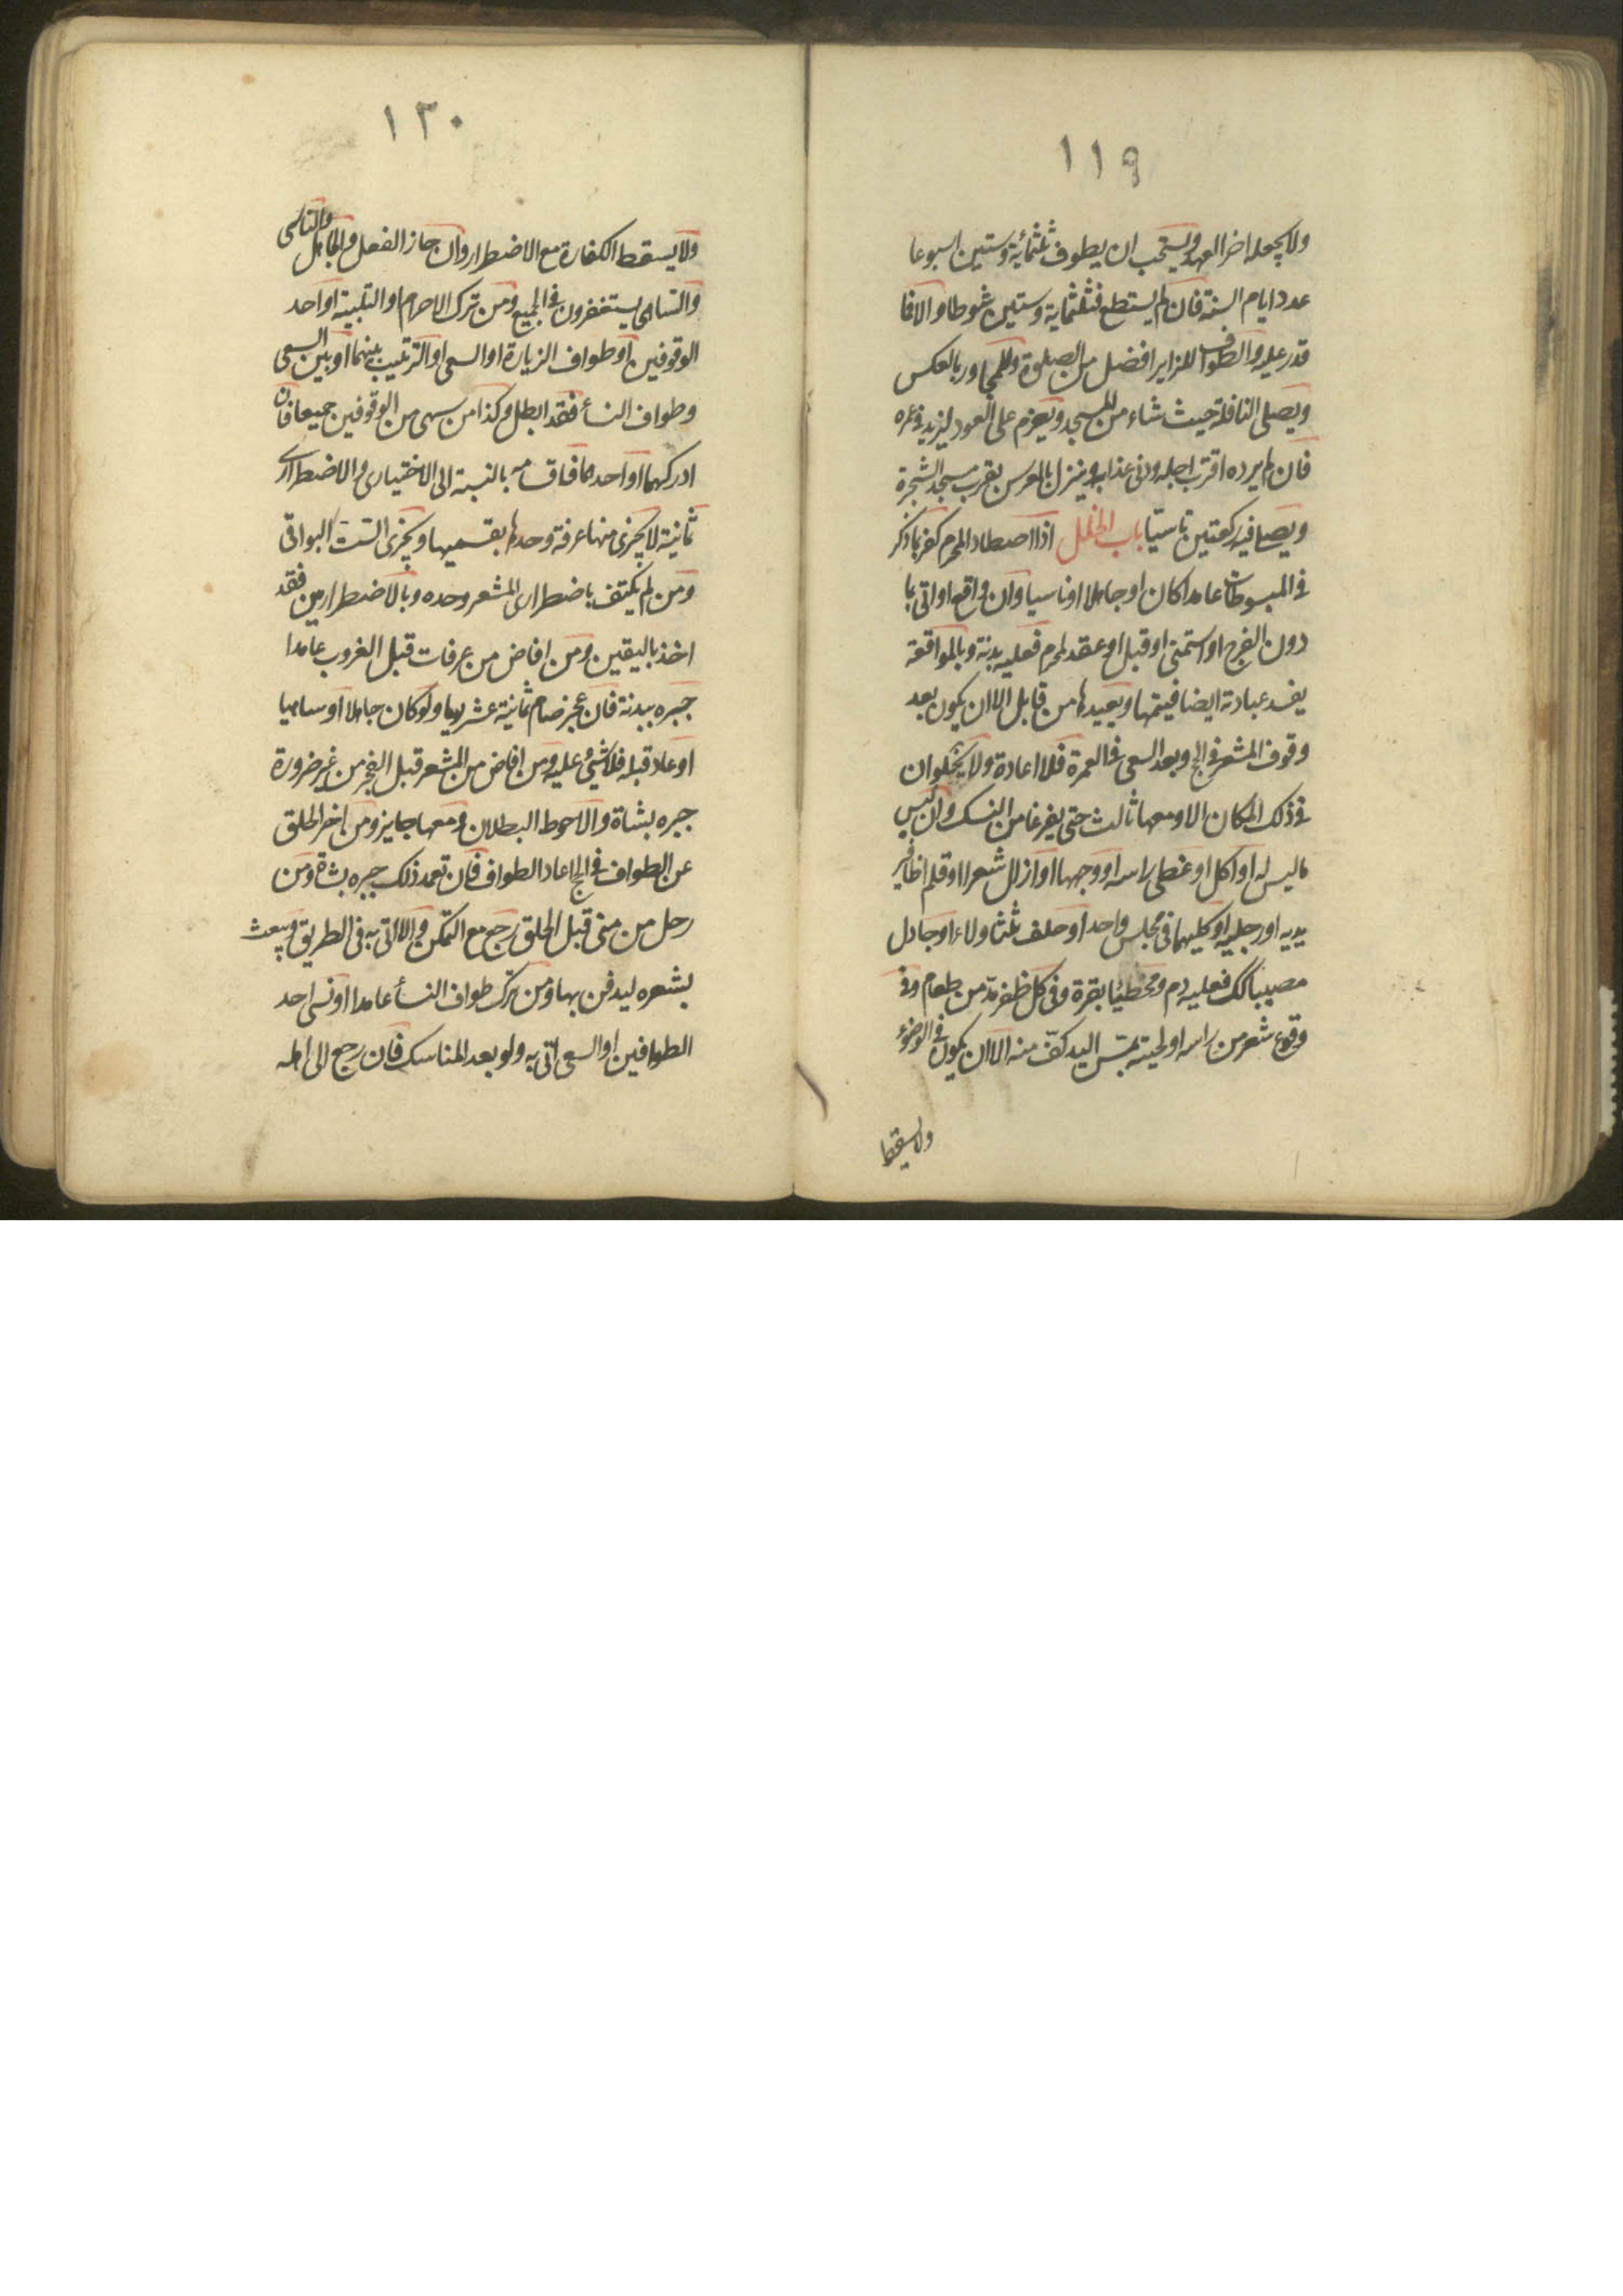 ١١٩
ولا يجعله اخر العهد ويستحب ان يطوف ثلثمائة وستين اسبوعا
عدد ايام السنة فان لم يستطع فثلثماية وستين شوطا والا فما
قدر عليه والطواف للزاير افضل من الصلوة وللمجاور بالعكس
ويصلى النافلة حيث شاء من المسجد ويعزم على العود ليزيد فى عمره
فان لم يرده اقترب اجله ودنى عذابه وينزل بالمعرس بقرب مسجد الشجرة
ويصلى فيه ركعتين تاسيّا باب الخلل اذا اصطاد المحرم كفر بما ذكر
فى المبسوطات عامدا كان او جاهلا او ناسيا وان واقع او اتى بما
دون الفرج او استمنى او قبل او عقد لمحرم فعليه بدنة وبالمواقعة
يفسد عبادته ايضا فيتمها ويعيدها من قابل الا ان يكون بعد
وقوف المشعر فى الحج وبعد السعى فى العمرة فلا اعادة ولا يخلوان
فى ذلك المكان الا ومعهما ثالث حتى يفرغا من النسك وان لبس
ما ليس له او اكل او غطى راسه او وجهها او ازال شعرا او قلم اظافير
يديه او رجليه او كليهما فى مجلس واحد او حلف ثلثا ولاء او جادل
مصيبا كك فعليه دم ومخطئا بقرة وفى كل ظفر مدّ من طعام وفى
وقوع شعر من راسه او لحيته بمسّ اليد كفّ منه الا ان يكون فى الوضوء
ولا يسقط
١٢٠
ولا يسقط الكفارة مع الاضطرار وان جاز الفعل والجاهل والناسى
والساهى يستغفرون فى الجميع ومن ترك الاحرام او التلبية او احد
الوقوفين او طواف الزيارة او السعى او الترتيب بينهما او بين السعى
وطواف النسأ فقد ابطل وكذا من سهى من الوقوفين جميعا فان
ادركهما او احدهما فاقسامه بالنسبة الى الاختيارى والاضطرارى
ثمانية لا يجزى منها عرفة وحدها بقسميها ويجزى الستّ البواقى
ومن لم يكتف باضطرارى المشعر وحده وبالاضطرارين فقد
اخذ باليقين ومن افاض من عرفات قبل الغروب عامدا
جبره ببدنة فان عجز صام ثمانية عشر يوما ولو كان جاهلا او ساهيا
او عاد قبله فلا شئ عليه ومن افاض من المشعر قبل الفجر من غير ضرورة
جبره بشاة والاحوط البطلان ومعها جايز ومن اخر الحلق
عن الطواف فى الحج اعاد الطواف فان تعمد ذلك جبره بشاة ومن
رحل من منى قبل الحلق رجع مع التمكن والا اتى به فى الطريق ويبعث
بشعره ليدفن بها ومن ترك طواف النسأ عامدا او نسى احد
الطوافين او السعى اتى به ولو بعد المناسك فان رجع الى اهله